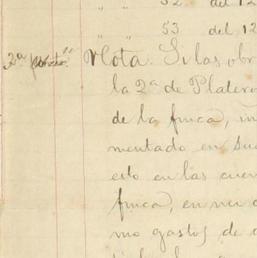 " " 52 del 12
" " 53 del 12
2ª Nota: Si las obr
la 2ª de Platero
de la finca, in
mentado en su
esto en las cuen
finca, en vez d
mo gastos de